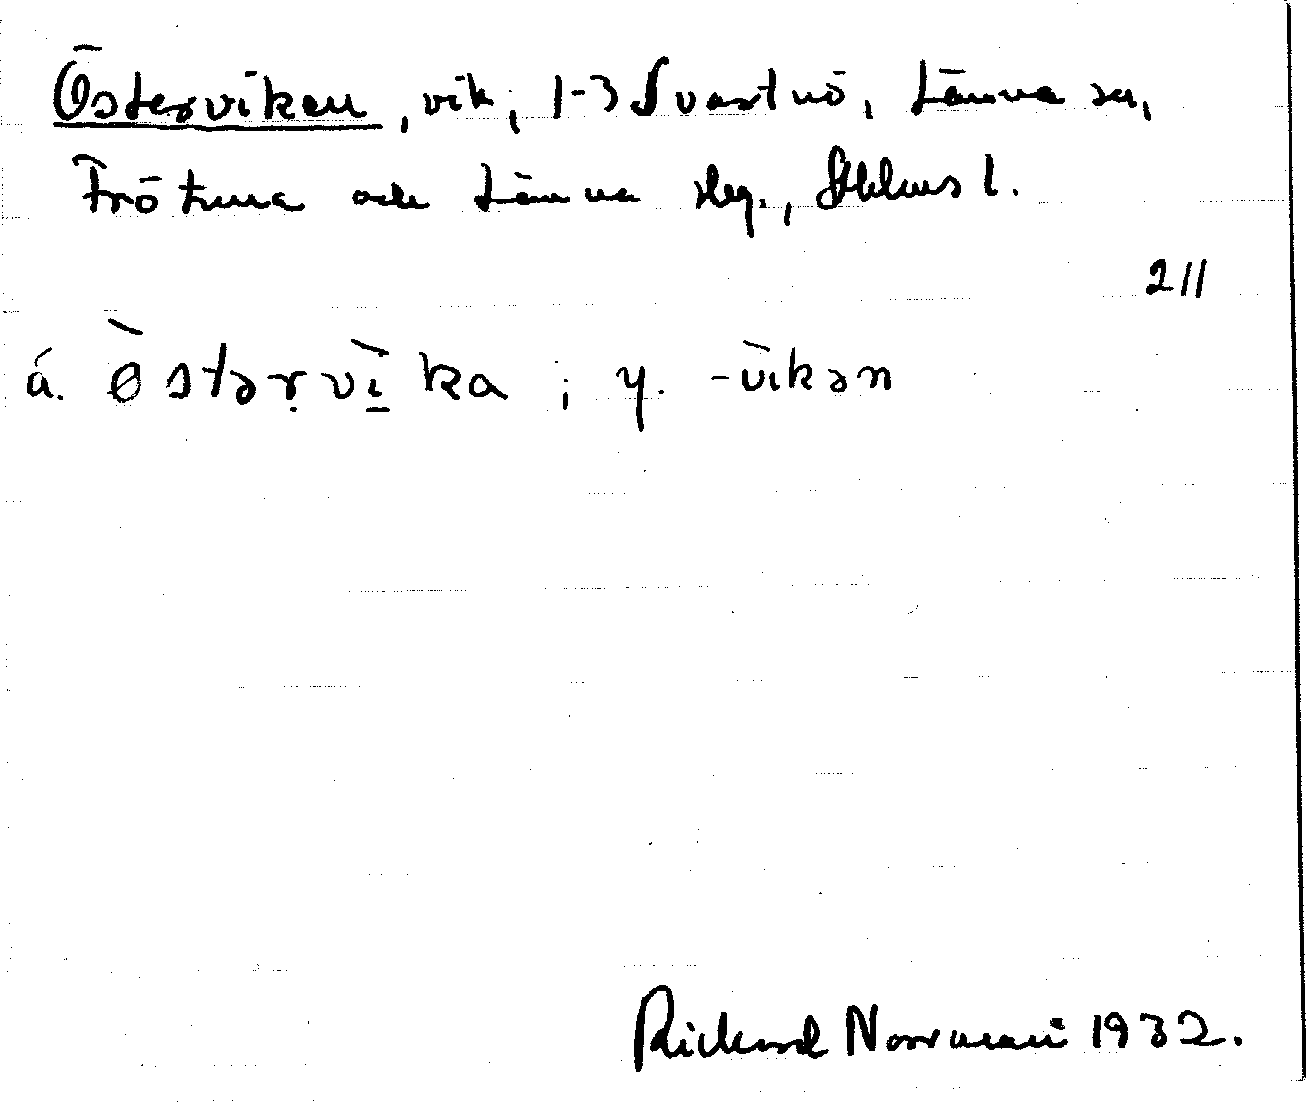 Österviken, vik, 1-3 Svartnö, Länna sn,
Frötuna och Länna skg., Sthlms l.
211
á. ø̀stərvì̱ka ; y. -vikən
Rickard Norrman 1932.